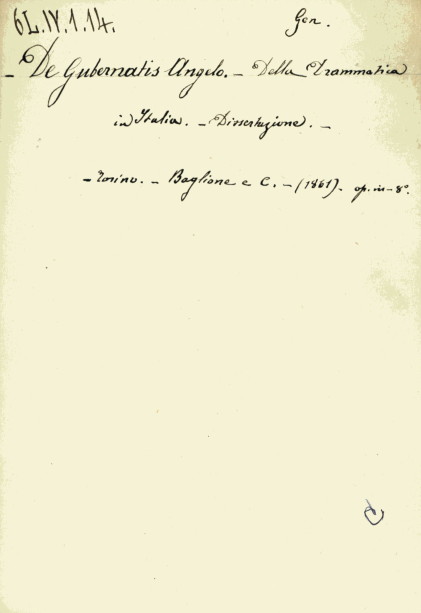 6L.IV.1.14.
Gen.
- De Gubernatis Angelo. - Della Drammatica
in Italia. - Dissertazione. -
- Torino. - Baglione e C. - (1861). op. in-8°.